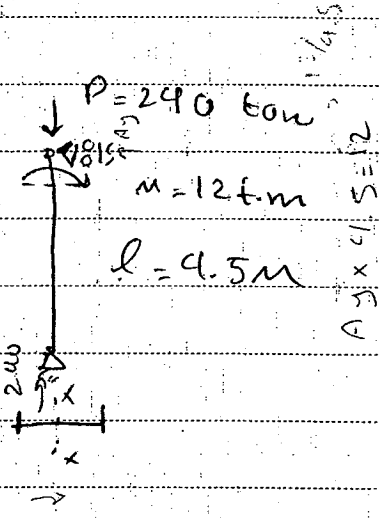 P = 240 ton
Ay
M = 12 t.m
l = 4.5 M
Ay x 4.5 = 12
240
x
x